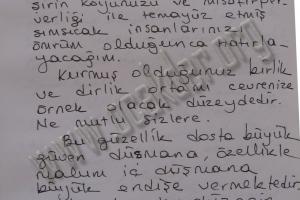 şirin köyünüzü ve misafirper-
verliği ile temayüz etmiş
sımsıcak insanlarınızı
ömrüm olduğunca hatırla-
yacağım.
Kurmuş olduğunuz birlik
ve dirlik ortamı çevrenize
örnek olacak düzeydedir.
Ne mutlu sizlere.
Bu güzellik dosta büyük
güven düşmana, özellikle
malum iç düşmana
büyük endişe vermektedir.